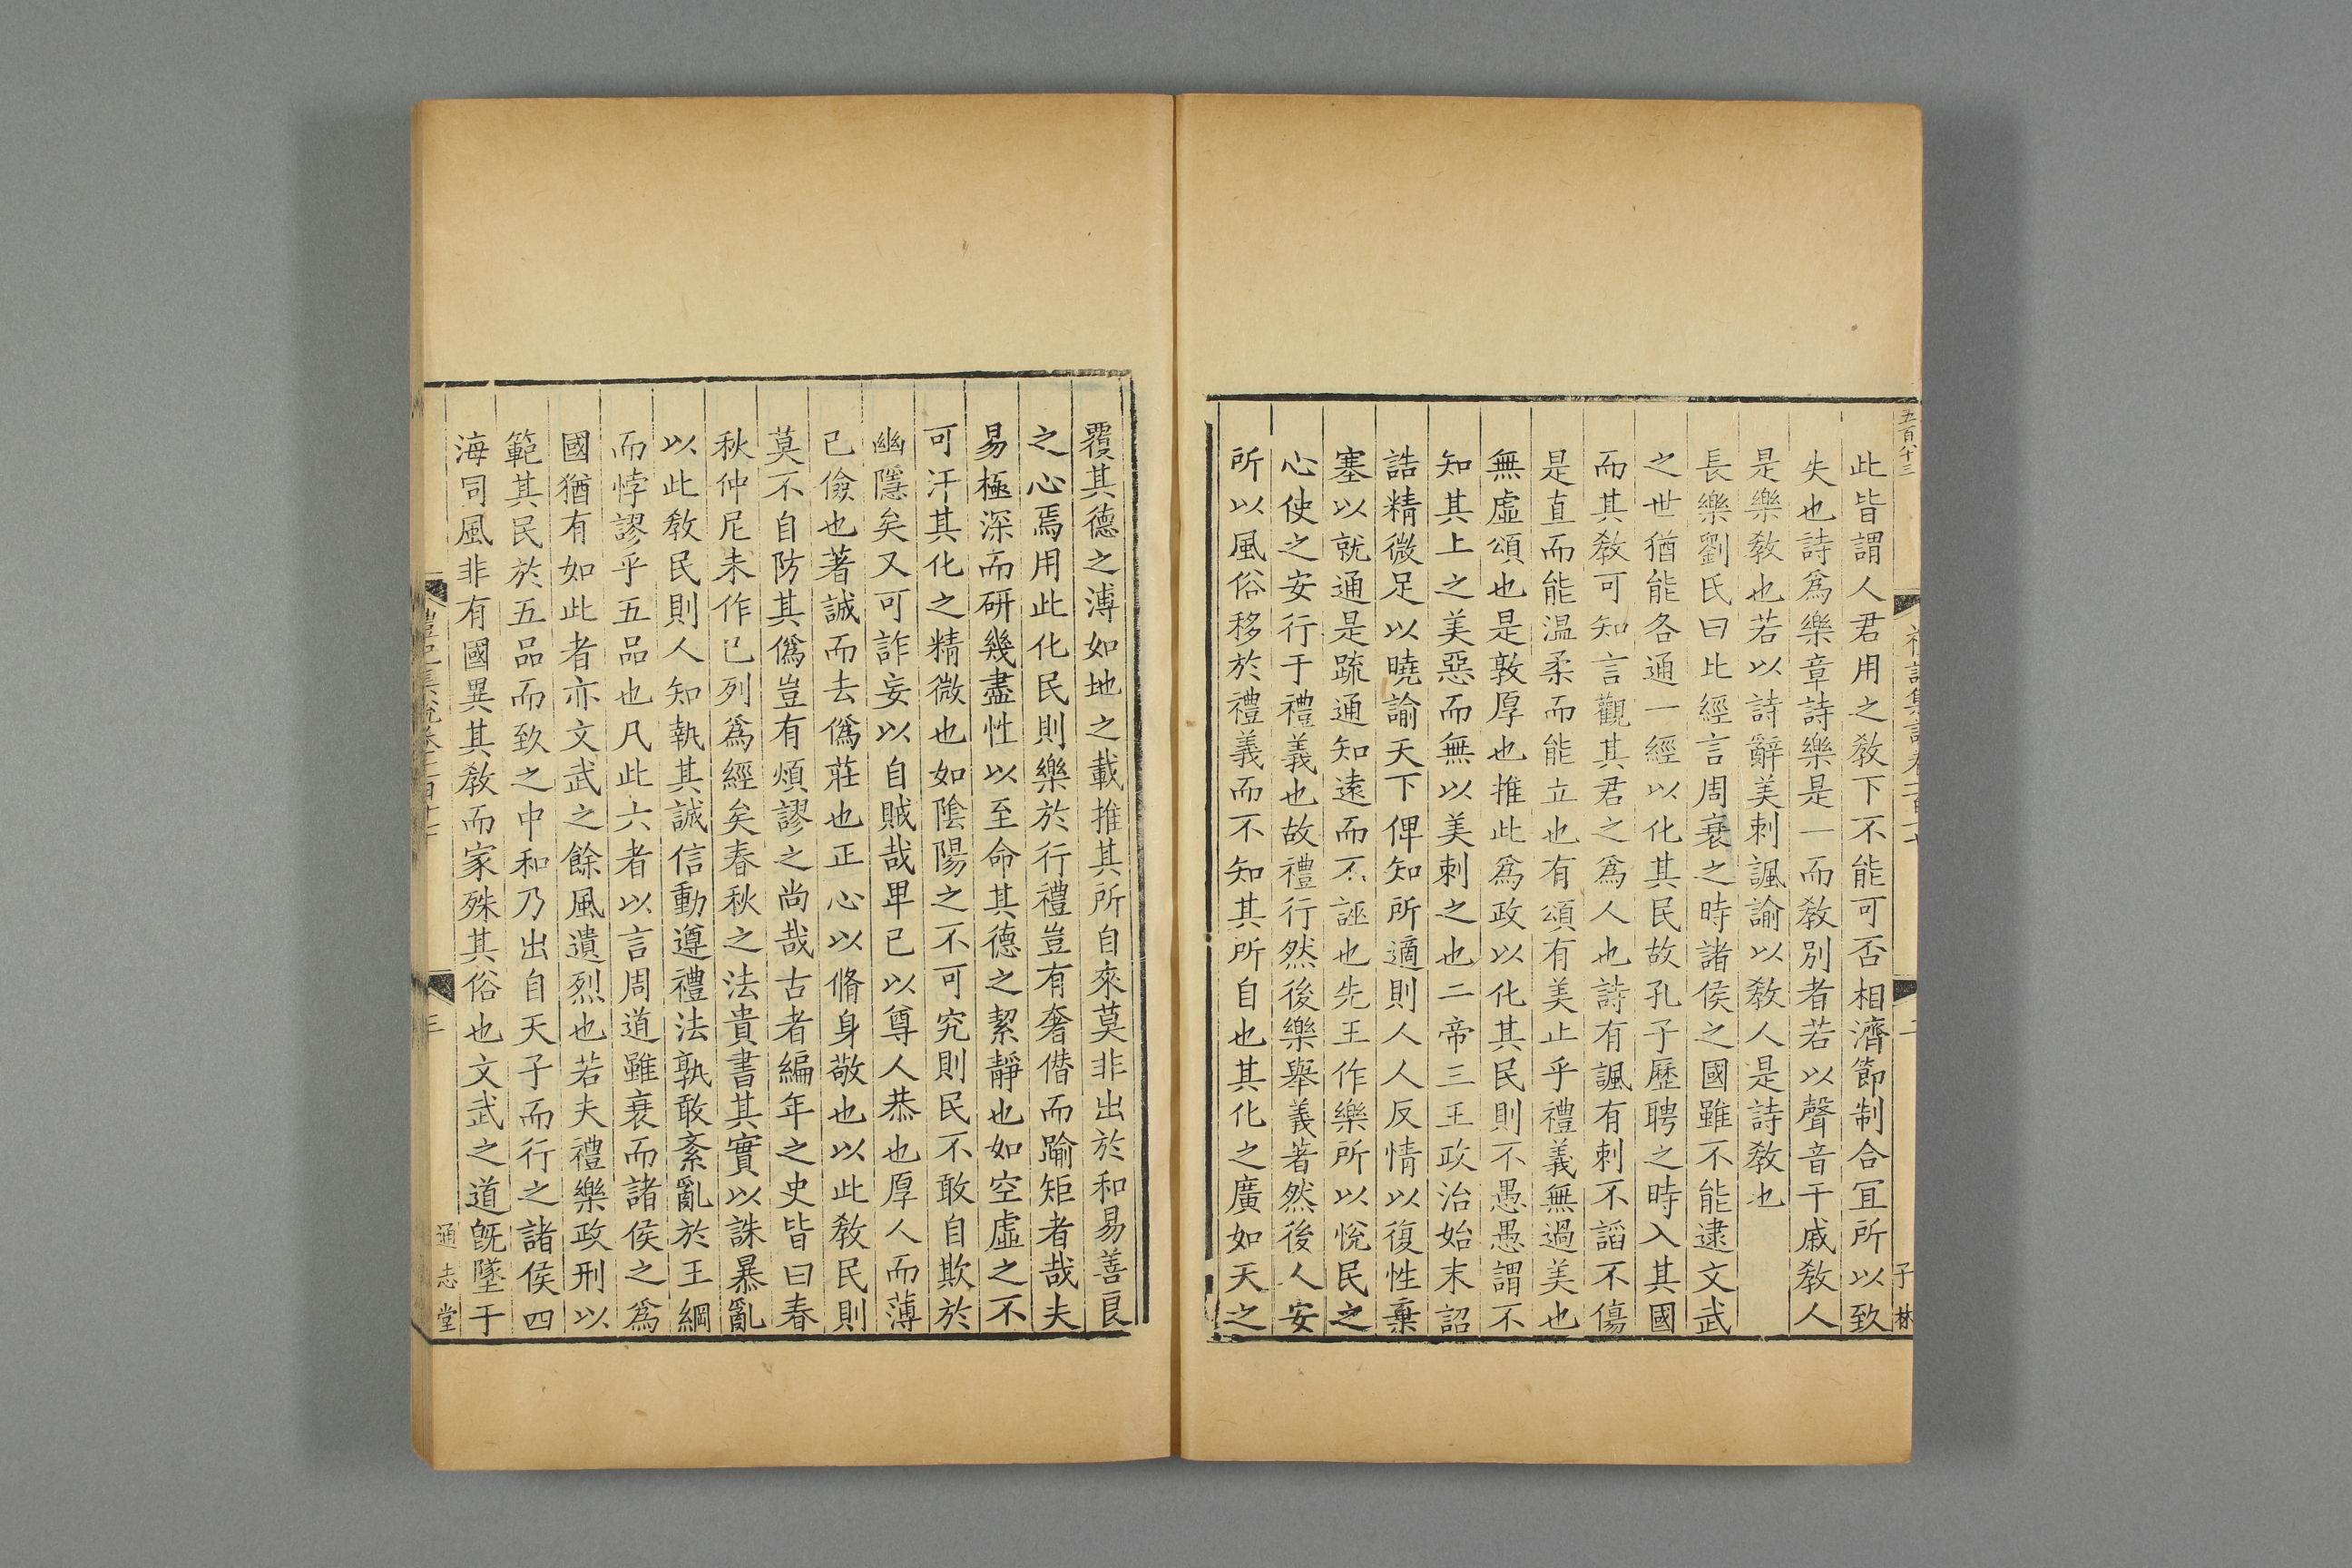 五百八十三
此皆謂人君用之敎下不能可否相濟節制合宜所以致
失也詩爲樂章詩樂是一而敎別者若以聲音干戚敎人
是樂敎也若以詩辭美刺諷諭以敎人是詩敎也
長樂劉氏曰此經言周衰之時諸侯之國雖不能逮文武
之世猶能各通一經以化其民故孔子歷聘之時入其國
而其敎可知言觀其君之爲人也詩有諷有刺不謟不傷
是直而能温柔而能立也有頌有美止乎禮義無過美也
無虛頌也是敦厚也推此爲政以化其民則不愚愚謂不
知其上之美惡而無以美刺之也二帝三王政治始末詔
誥精微足以曉諭天下俾知所適則人人反情以復性棄
塞以就通是疏通知遠而不誣也先王作樂所以悅民之
心使之安行于禮義也故禮行然後樂舉義著然後人安
所以風俗移於禮義而不知其所自也其化之廣如天之
子林
覆其德之溥如地之載推其所自來莫非出於和易善良
之心焉用此化民則樂於行禮豈有奢僭而踰矩者哉夫
易極深而研幾盡性以至命其德之絜靜也如空虛之不
可汙其化之精微也如陰陽之不可究則民不敢自欺於
幽隱矣又可詐妄以自賊哉卑已以尊人恭也厚人而薄
已儉也著誠而去僞莊也正心以脩身敬也以此敎民則
莫不自防其僞豈有煩謬之尚哉古者編年之史皆曰春
秋仲尼未作已列爲經矣春秋之法貴書其實以誅暴亂
以此敎民則人知執其誠信動遵禮法孰敢紊亂於王綱
而悖謬乎五品也凡此六者以言周道雖衰而諸侯之爲
國猶有如此者亦文武之餘風遺烈也若夫禮樂政刑以
範其民於五品而致之中和乃出自天子而行之諸侯四
海同風非有國異其敎而家殊其俗也文武之道旣墜于
三
通志堂